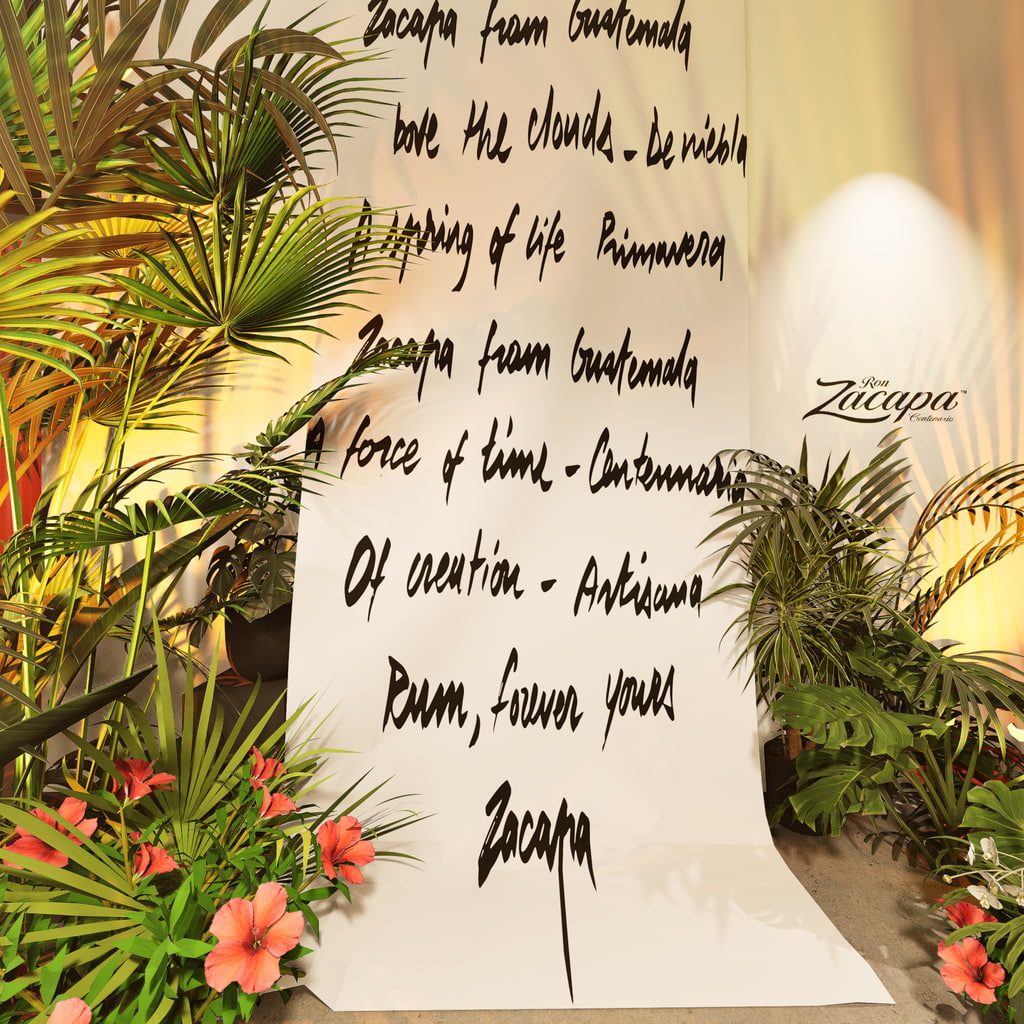 Zacapa from Guatemala
bove the clouds - De niebla
A spring of life Primavera
Zacapa from Guatemala
A force of time - Centennario
Of creation - Artisana
Rum, forever yours
Zacapa
Ron
Zacapa™
Centenario